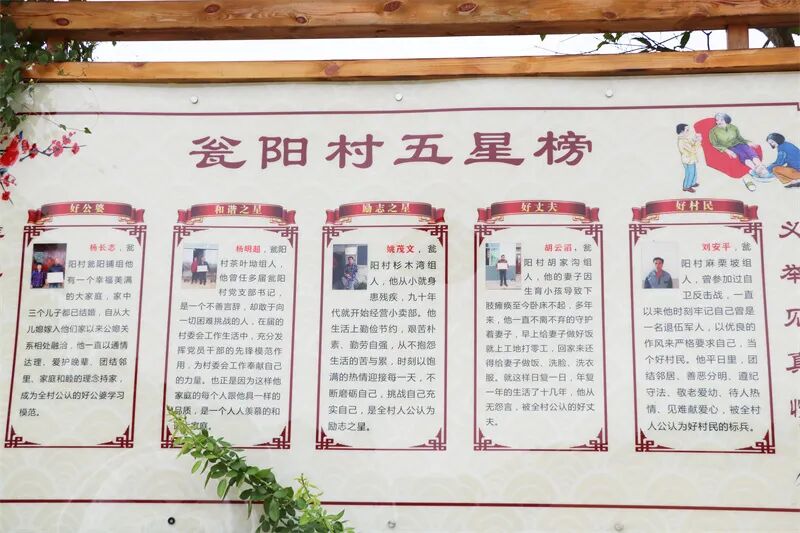 瓮阳村五星榜
好公婆
杨长志，瓮
阳村瓮阳铺组他
有一个幸福美满
的大家庭，家中
三个儿子都已结婚，自从大
儿媳嫁人他们家以来公媳关
系相处融洽，他一直以通情
达理、爱护晚辈、团结邻
里、家庭和睦的理念持家，
成为全村公认的好公婆学习
模范。
和谐之星
杨明超，瓮阳
村茶叶坳组人，
他曾任多届瓮阳
村党支部书记，
是一个不善言辞，却敢于向
一切困难挑战的人，在届的
村委会工作生活中，充分发
挥党员干部的先锋模范作
用，为村委会工作奉献自己
的力量。也正是因为这样他
家庭的每个人跟他具一样的
品质，是一个人人羡慕的和
家庭。
励志之星
姚茂文，瓮
阳村杉木湾组
人，他从小就身
患残疾，九十年
代就开始经营小卖部。他
生活上勤俭节约，艰苦朴
素、勤劳自强，从不抱怨
生活的苦与累，时刻以饱
满的热情迎接每一天，不
断磨砺自己，挑战自己充
实自己，是全村人公认为
励志之星。
好丈夫
胡云滔，瓮
阳村胡家沟组
人，他的妻子因
生育小孩导致下
肢瘫痪至今卧床不起，多年
来，他一直不离不弃的守护
着妻子，早上给妻子做好饭
就上工地打零工，回家来还
得给妻子做饭、洗脸、洗衣
服。就这样日复一日，年复
一年的生活了十几年，他从
无怨言，被全村公认的好丈
夫。
好村民
刘安平，瓮
阳村麻栗坡组
人，曾参加过自
卫反击战，一直
以来他时刻牢记自己曾是
一名退伍军人，以优良的
作风来严格要求自己，当
个好村民。他平日里，团
结邻居、善恶分明、遵纪
守法、敬老爱幼、待人热
情、见难献爱心，被全村
人公认为好村民的标兵。
义举见真